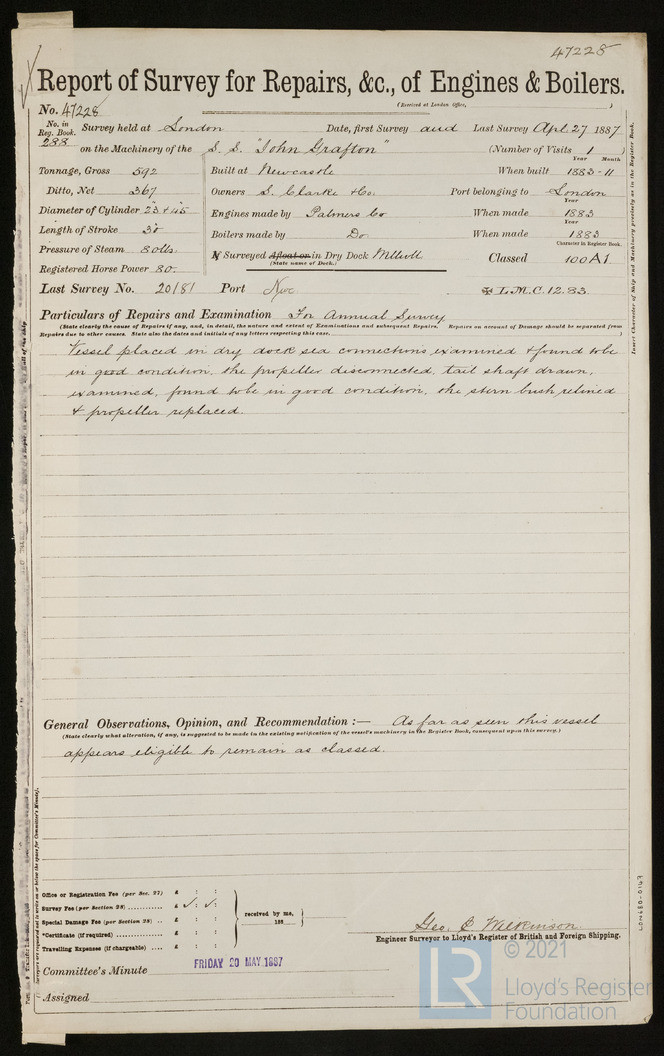 47228
Report of Survey for Repairs, &c., of Engines & Boilers.
(Received at London Office, )
No. 47228
No. in Reg. Book. 288 Survey held at London Date, first Survey and Last Survey Apl. 27 1887
on the Machinery of the S. S. "John Grafton" (Number of Visits 1 )
Tonnage, Gross 592 Built at Newcastle When built 1883-11 Year Month
Ditto, Net 367 Owners S. Clarke & Co. Port belonging to London
Diameter of Cylinder 23" & 45" Engines made by Palmers Co When made 1883 Year
Length of Stroke 30" Boilers made by Do. When made 1883 Year
Pressure of Steam 80 lbs. If Surveyed Afloat or in Dry Dock Millwall Classed 100A1 Character in Register Book.
(State name of Dock.)
Registered Horse Power 80.
Last Survey No. 20181 Port Nwc ✠ L.M.C. 12.83.
Particulars of Repairs and Examination For Annual Survey
(State clearly the cause of Repairs if any, and, in detail, the nature and extent of Examinations and subsequent Repairs. Repairs on account of Damage should be separated from
Repairs due to other causes. State also the dates and initials of any letters respecting this case. )
Vessel placed in dry dock sea connections, examined & found to be
in good condition, the propeller disconnected, tail shaft drawn,
examined, found to be in good condition, the stern bush relined
& propeller replaced.
General Observations, Opinion, and Recommendation :— As far as seen this vessel
(State clearly what alteration, if any, is suggested to be made in the existing notification of the vessel's machinery in the Register Book, consequent upon this survey.)
appears eligible to remain as classed.
Office or Registration Fee (per Sec. 27) £ : :
Survey Fee (per Section 28) ............ £ : :
Special Damage Fee (per Section 28) .. £ : :
*Certificate (if required) ............... £ : :
Travelling Expenses (if chargeable) .... £ : :
received by me,
188
Geo. C. Wilkinson
Engineer Surveyor to Lloyd's Register of British and Foreign Shipping.
Committee's Minute FRIDAY 20 MAY 1887
Assigned
Insert Character of Ship and Machinery precisely as in the Register Book.
LON680-0167
LR
© 2021
Lloyd's Register
Foundation